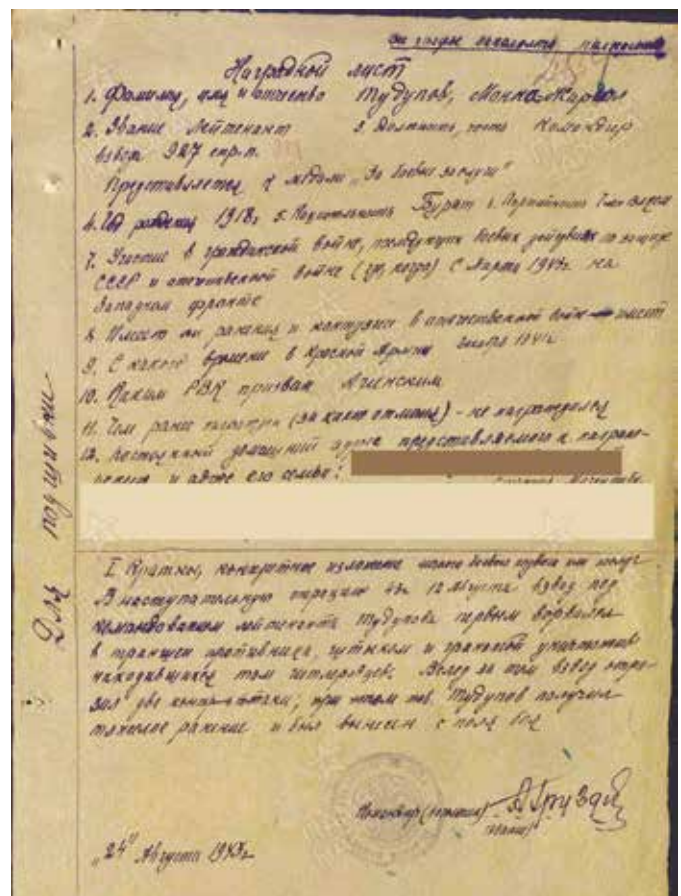 Наградной лист
1. Фамилия, имя и отчество Тудупов, Монко-Жаргал
2. Звание Лейтенант 3. Должность, часть Командир
взвода 927 стр. п.
Представляется к медали „За боевые заслуги"
4. Год рождения 1918г 5. Национальность Бурат 6. Партийность
7. Участие в гражданской войне, последующих боевых действиях по защите
СССР и отечественной войне (где, когда) С марта 1943г. на
Западном фронте
8. Имеет ли ранения и контузии в отечественной войне имеет
9. С какого времени в Красной Армии 1941г
10. Каким РВК призван Агинским
11. Чем ранее награжден (за какие отличия) - не награждался
12. Постоянный домашний адрес представляемого к награж-
дению и адрес его семьи:
Для подшивки
I. Краткое, конкретное изложение личного боевого подвига или заслуг
В наступательную операцию 43г. 12 Августа взвод под
командованием лейтенанта Тудупова первым ворвался
в траншеи противника, штыком и гранатой уничтожив
находившихся там гитлеровцев. Вслед за тем взвод отра-
зил две контратаки, при этом тов. Тудупов получил
тяжелое ранение и был вынесен с поля боя
Командир
„24" Августа 1943г